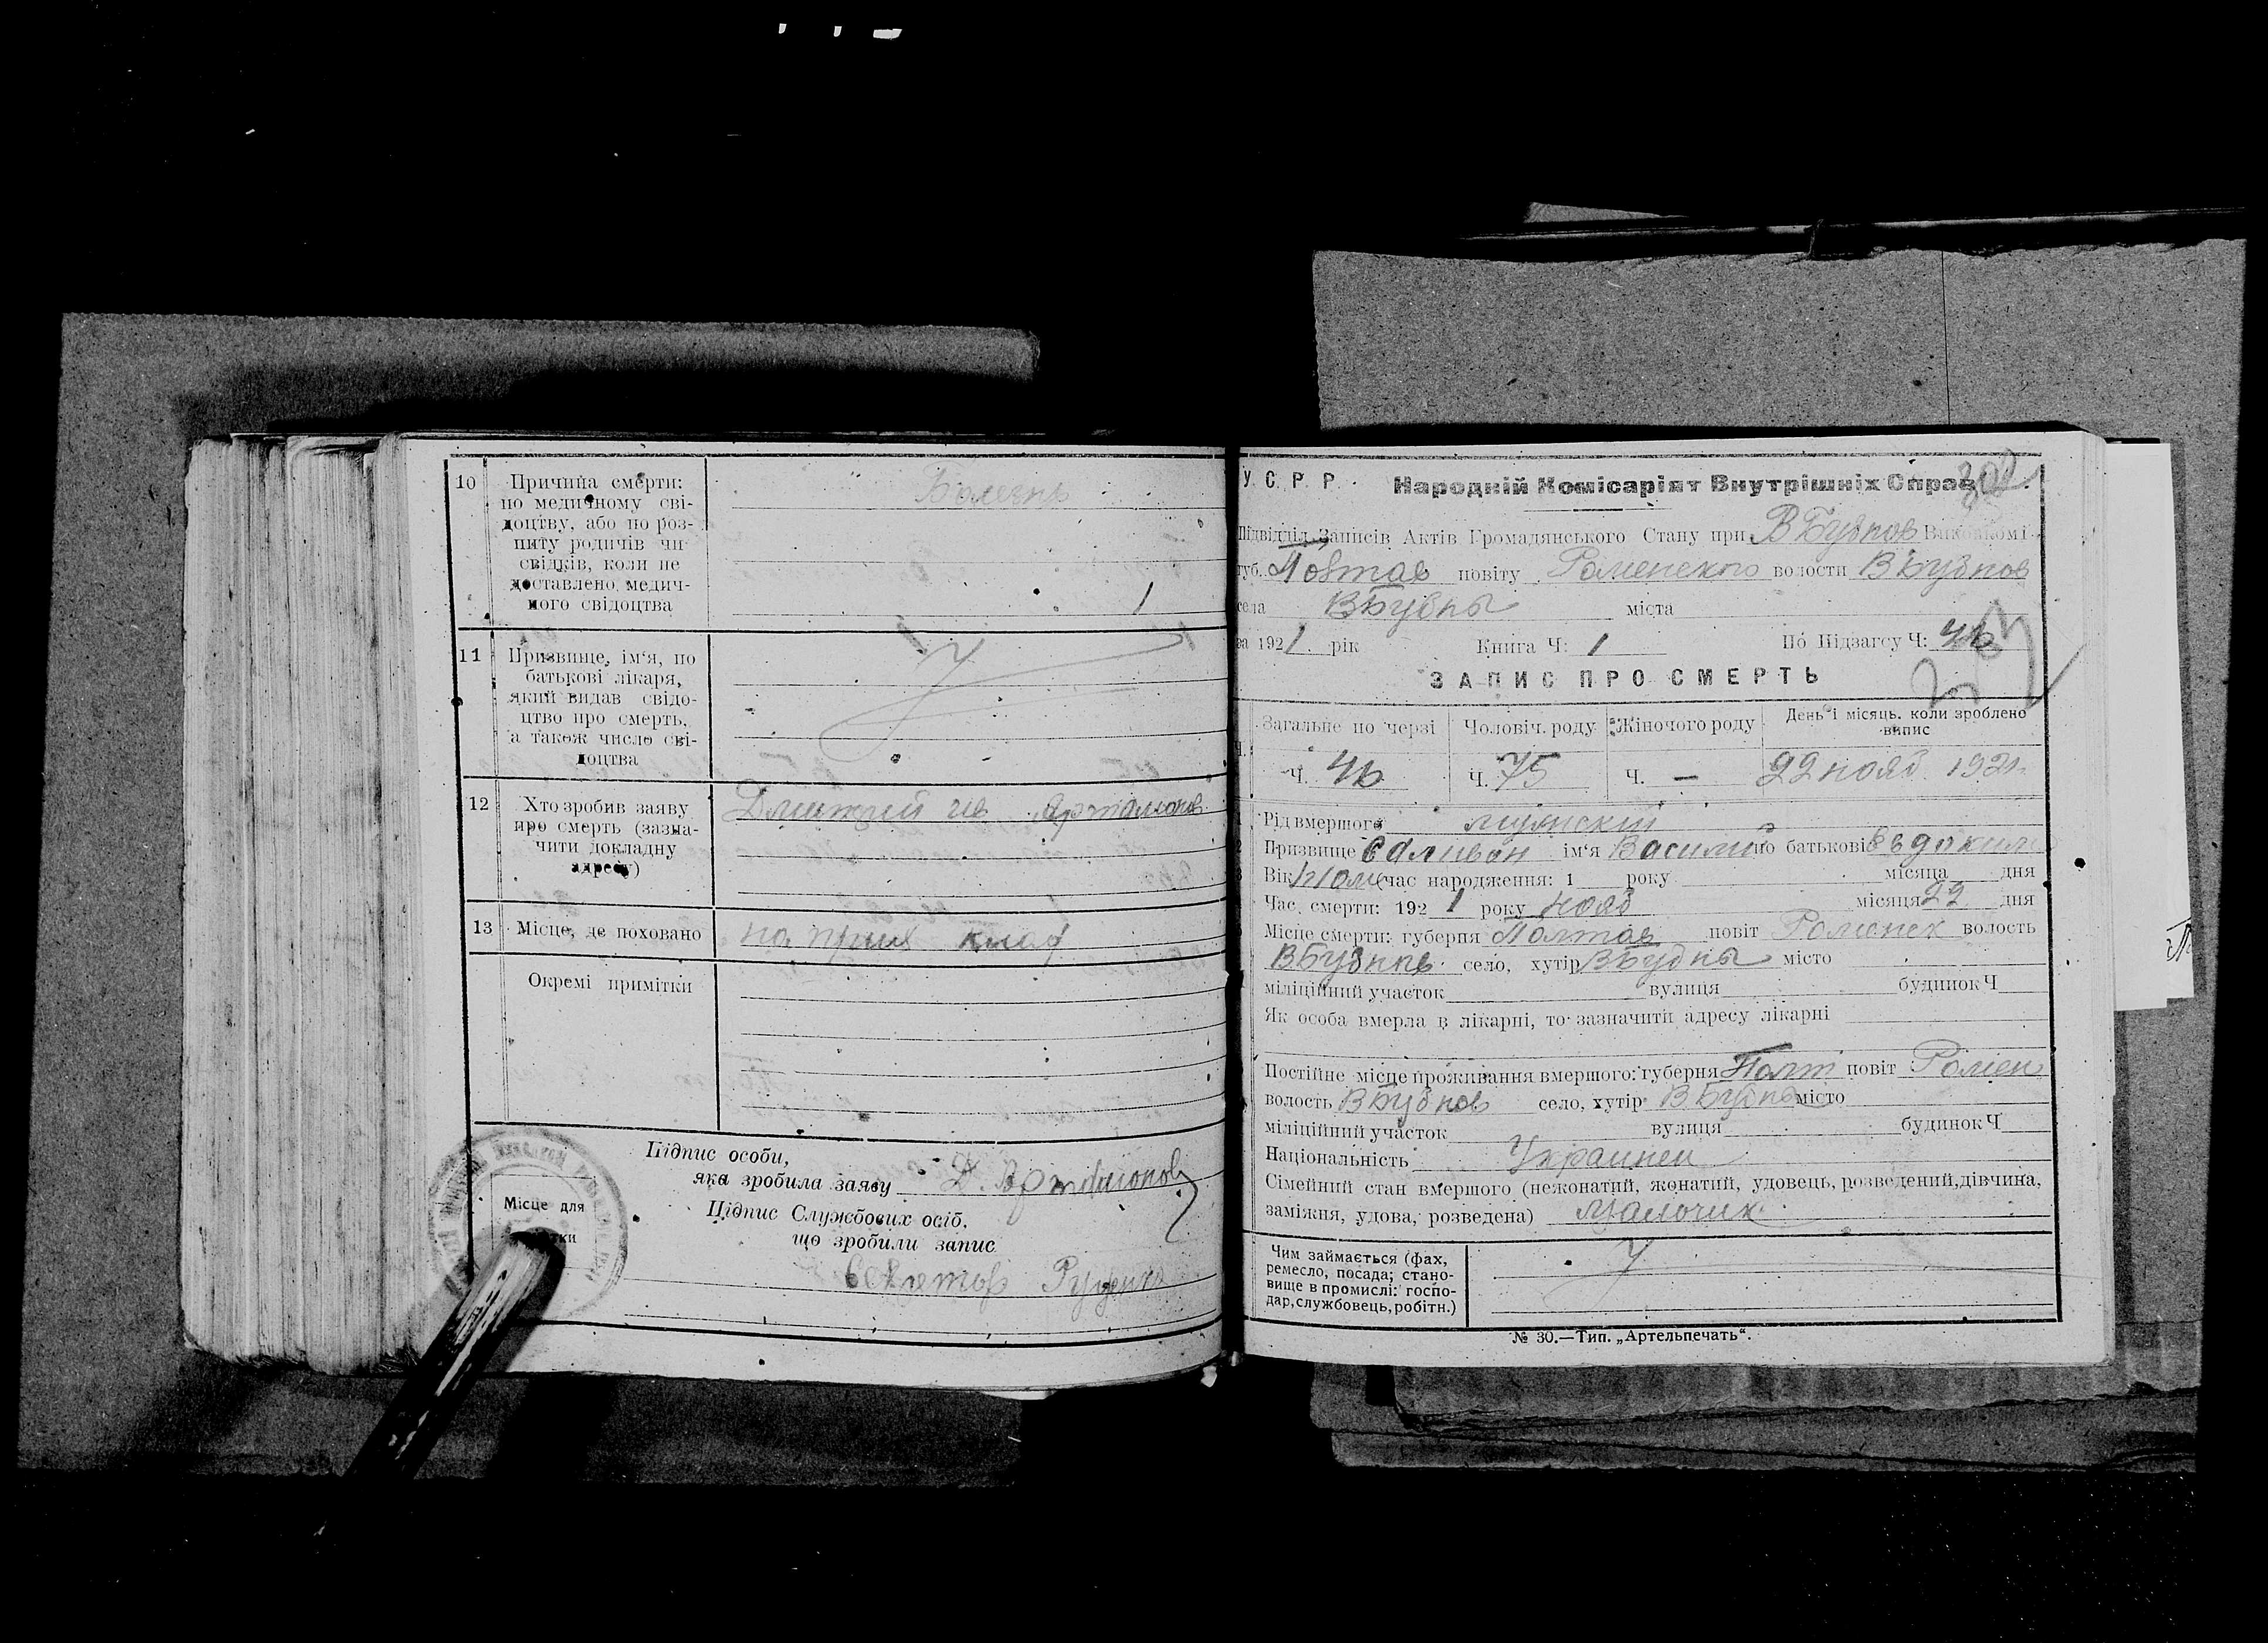 10
Причина смерти:
по медичному сві-
доцтву, або по роз-
питу родичів чи
свідків, коли не
доставлено медич-
ного свідоцтва
Болезнь
11
Призвище, ім'я, по
батькові лікаря,
який видав свідо-
цтво про смерть,
а також число сві-
доцтва
12
Хто зробив заяву
про смерть (зазна-
чити докладну
адресу)
Дмитрий
13
Місце, де поховано
на прих клад
Окремі примітки
Підпис особи,
яка зробила заяву Д.
Підпис Службових осіб,
що зробили запис
Місце для
У. С. Р. Р.
Народній Комісаріят Внутрішніх Справ
302
Підвідділ Записів Актів Громадянського Стану при ВБубнов Виконкомі
губ. Полтав повіту Роменского волости ВБубнов
села ВБубны міста
за 1921 рік Книга Ч: 1 По Підзагсу Ч: 46
ЗАПИС ПРО СМЕРТЬ
Загальне по черзі Чоловіч. роду Жіночого роду День і місяць, коли зроблено
випис
Ч. 46 Ч. 75 Ч. — 22 нояб 1921
Рід вмершого мужский
Призвище Саливон ім'я Василий по батькові Евдоким
Вік час народження: 1 року місяця дня
Час смерти: 1921 року нояб місяця 22 дня
Місце смерти: губерня Полтав повіт Роменск волость
ВБубнов село, хутір ВБубны місто
міліційний участок вулиця будинок Ч
Як особа вмерла в лікарні, то зазначити адресу лікарні
Постійне місце проживання вмершого: губерня Полт повіт Ромен
волость ВБубнов село, хутір ВБубны місто
міліційний участок вулиця будинок Ч
Національність Украинец
Сімейний стан вмершого (нежонатий, жонатий, удовець, розведений, дівчина,
заміжня, удова, розведена) Мальчик
Чим займається (фах,
ремесло, посада; стано-
вище в промислі: госпо-
дар, службовець, робітн.)
№ 30.—Тип. „Артельпечать".